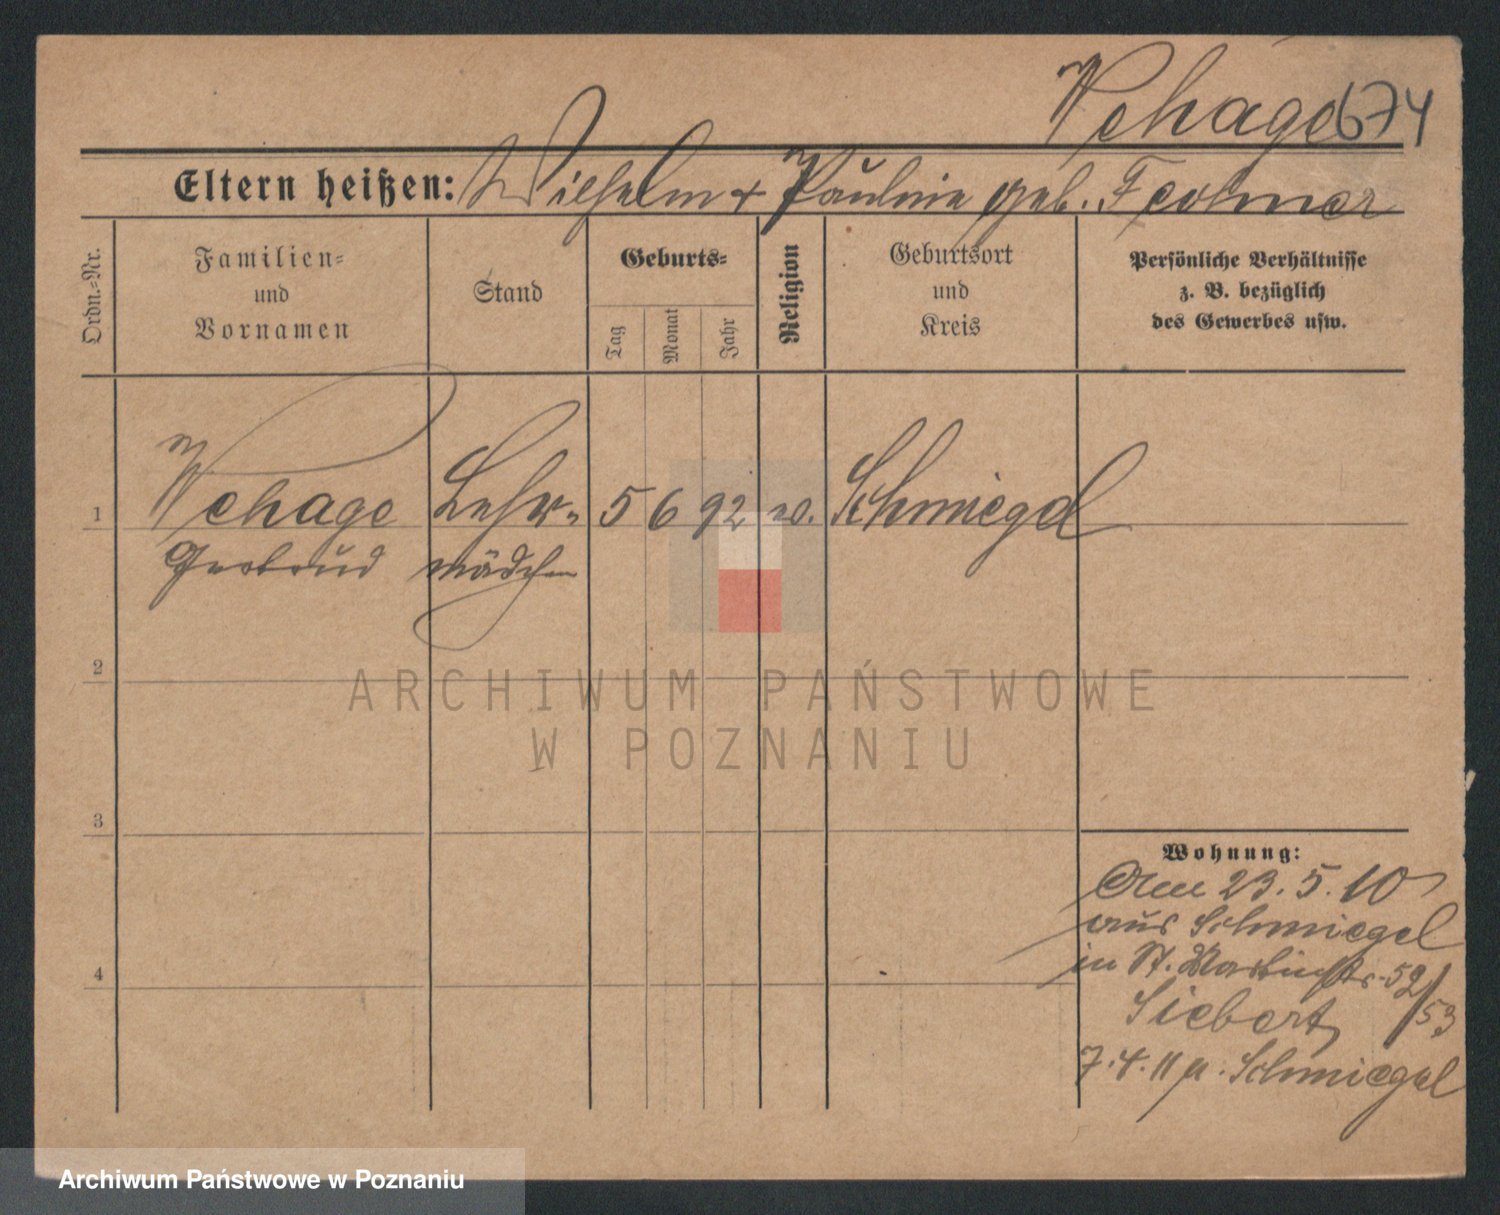 Wehage 674
Eltern heißen: Wilhelm + Pauline geb.
Ordn.-Nr.
Familien-
und
Vornamen
Stand
Geburts-
Tag
Monat
Jahr
Religion
Geburtsort
und
Kreis
Persönliche Verhältnisse
z. B. bezüglich
des Gewerbes usw.
1 Wehage Lehr- 5 6 92 Schmiegel
Gertrud mädchen
2
ARCHIWUM PAŃSTWOWE
W POZNANIU
3
Wohnung:
23. 5. 10
aus Schmiegel
in St. Martinstr. 52/53
Siebert
7. 4. 11 n. Schmiegel
4
Archiwum Państwowe w Poznaniu